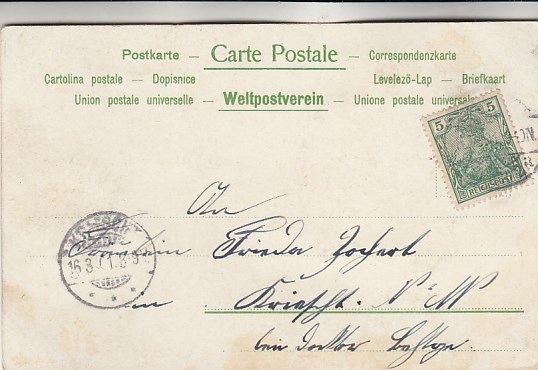 Postkarte — Carte Postale — Correspondenzkarte
Cartolina postale — Dopisnice Levelező-Lap — Briefkaart
Union postale universelle — Weltpostverein — Unione postale universale
5 5
REICHSPOST
An
Fräulein Frieda Zochert
16.3.
in Kriescht. N/M
bei Doktor